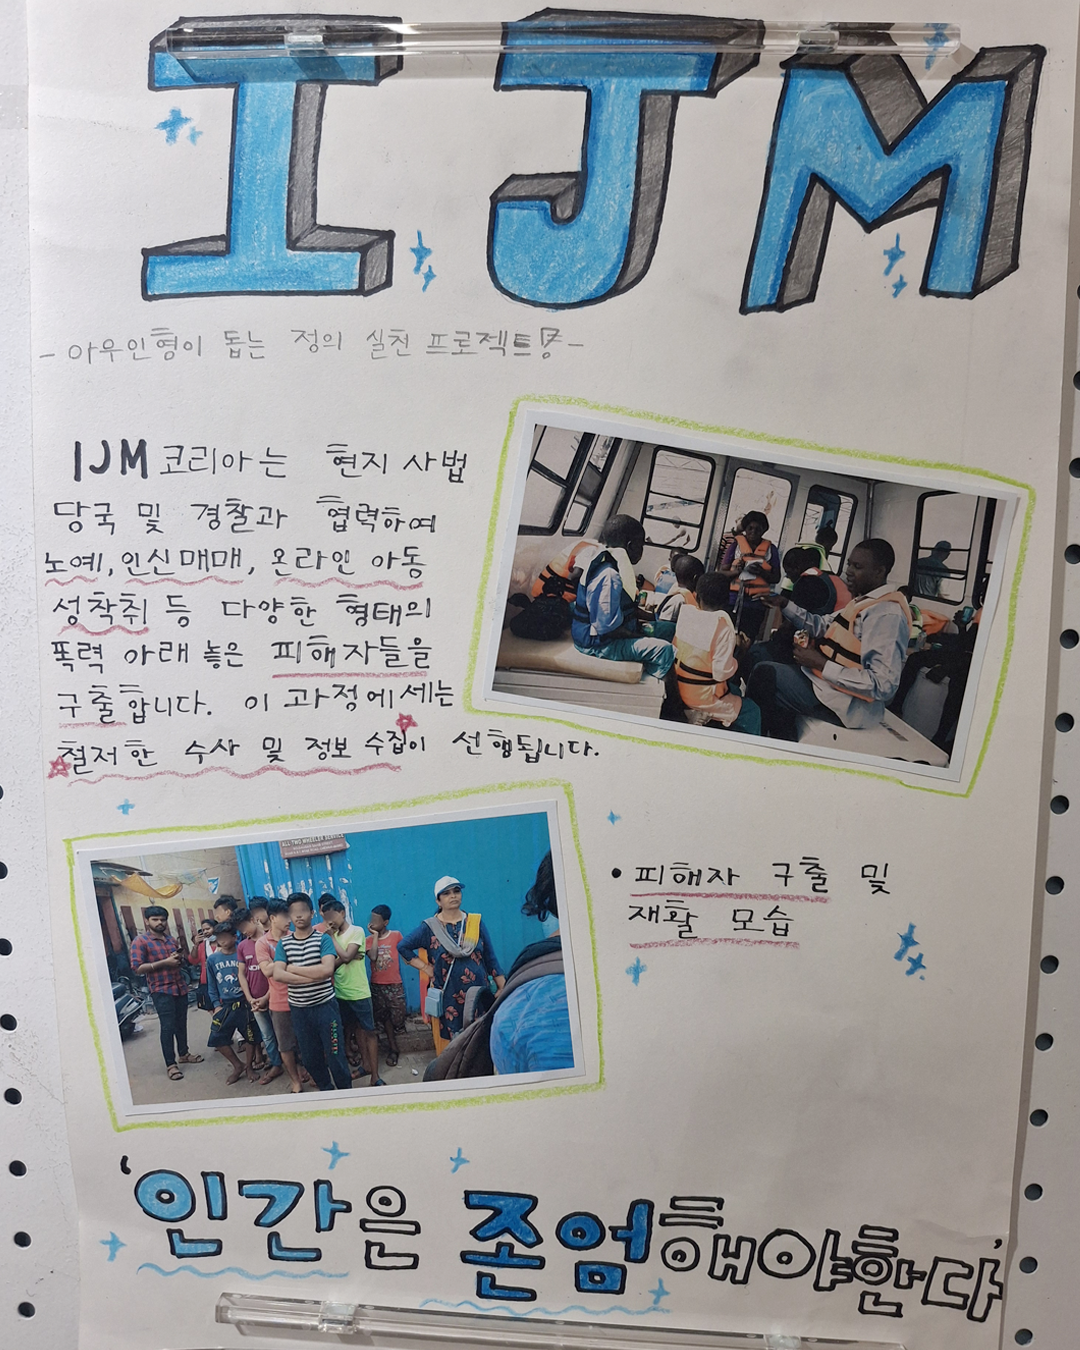 IJM
- 아우인형이 돕는 정의 실천 프로젝트 -
IJM 코리아는 현지 사법
당국 및 경찰과 협력하여
노예, 인신매매, 온라인 아동
성착취 등 다양한 형태의
폭력 아래 놓은 피해자들을
구출합니다. 이 과정에세는
철저한 수사 및 정보 수집이 선행됩니다.
ALL TWO WHEELER SERVICE
• 피해자 구출 및
재활 모습
'인간은 존엄해야한다'